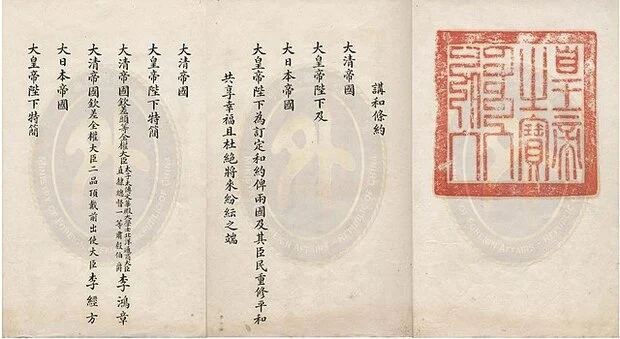 皇帝
之寶
講和條約
大清帝國
大皇帝陛下及
大日本帝國
大皇帝陛下為訂定和約俾兩國及其臣民重修平和
共享幸福且杜絕將來紛紜之端
大清帝國
大皇帝陛下特簡
大清帝國欽差頭等全權大臣太子太傅文華殿大學士北洋通商大臣直隸總督一等肅毅伯爵李鴻章
大清帝國欽差全權大臣二品頂戴前出使大臣李經方
大日本帝國
大皇帝陛下特簡
外